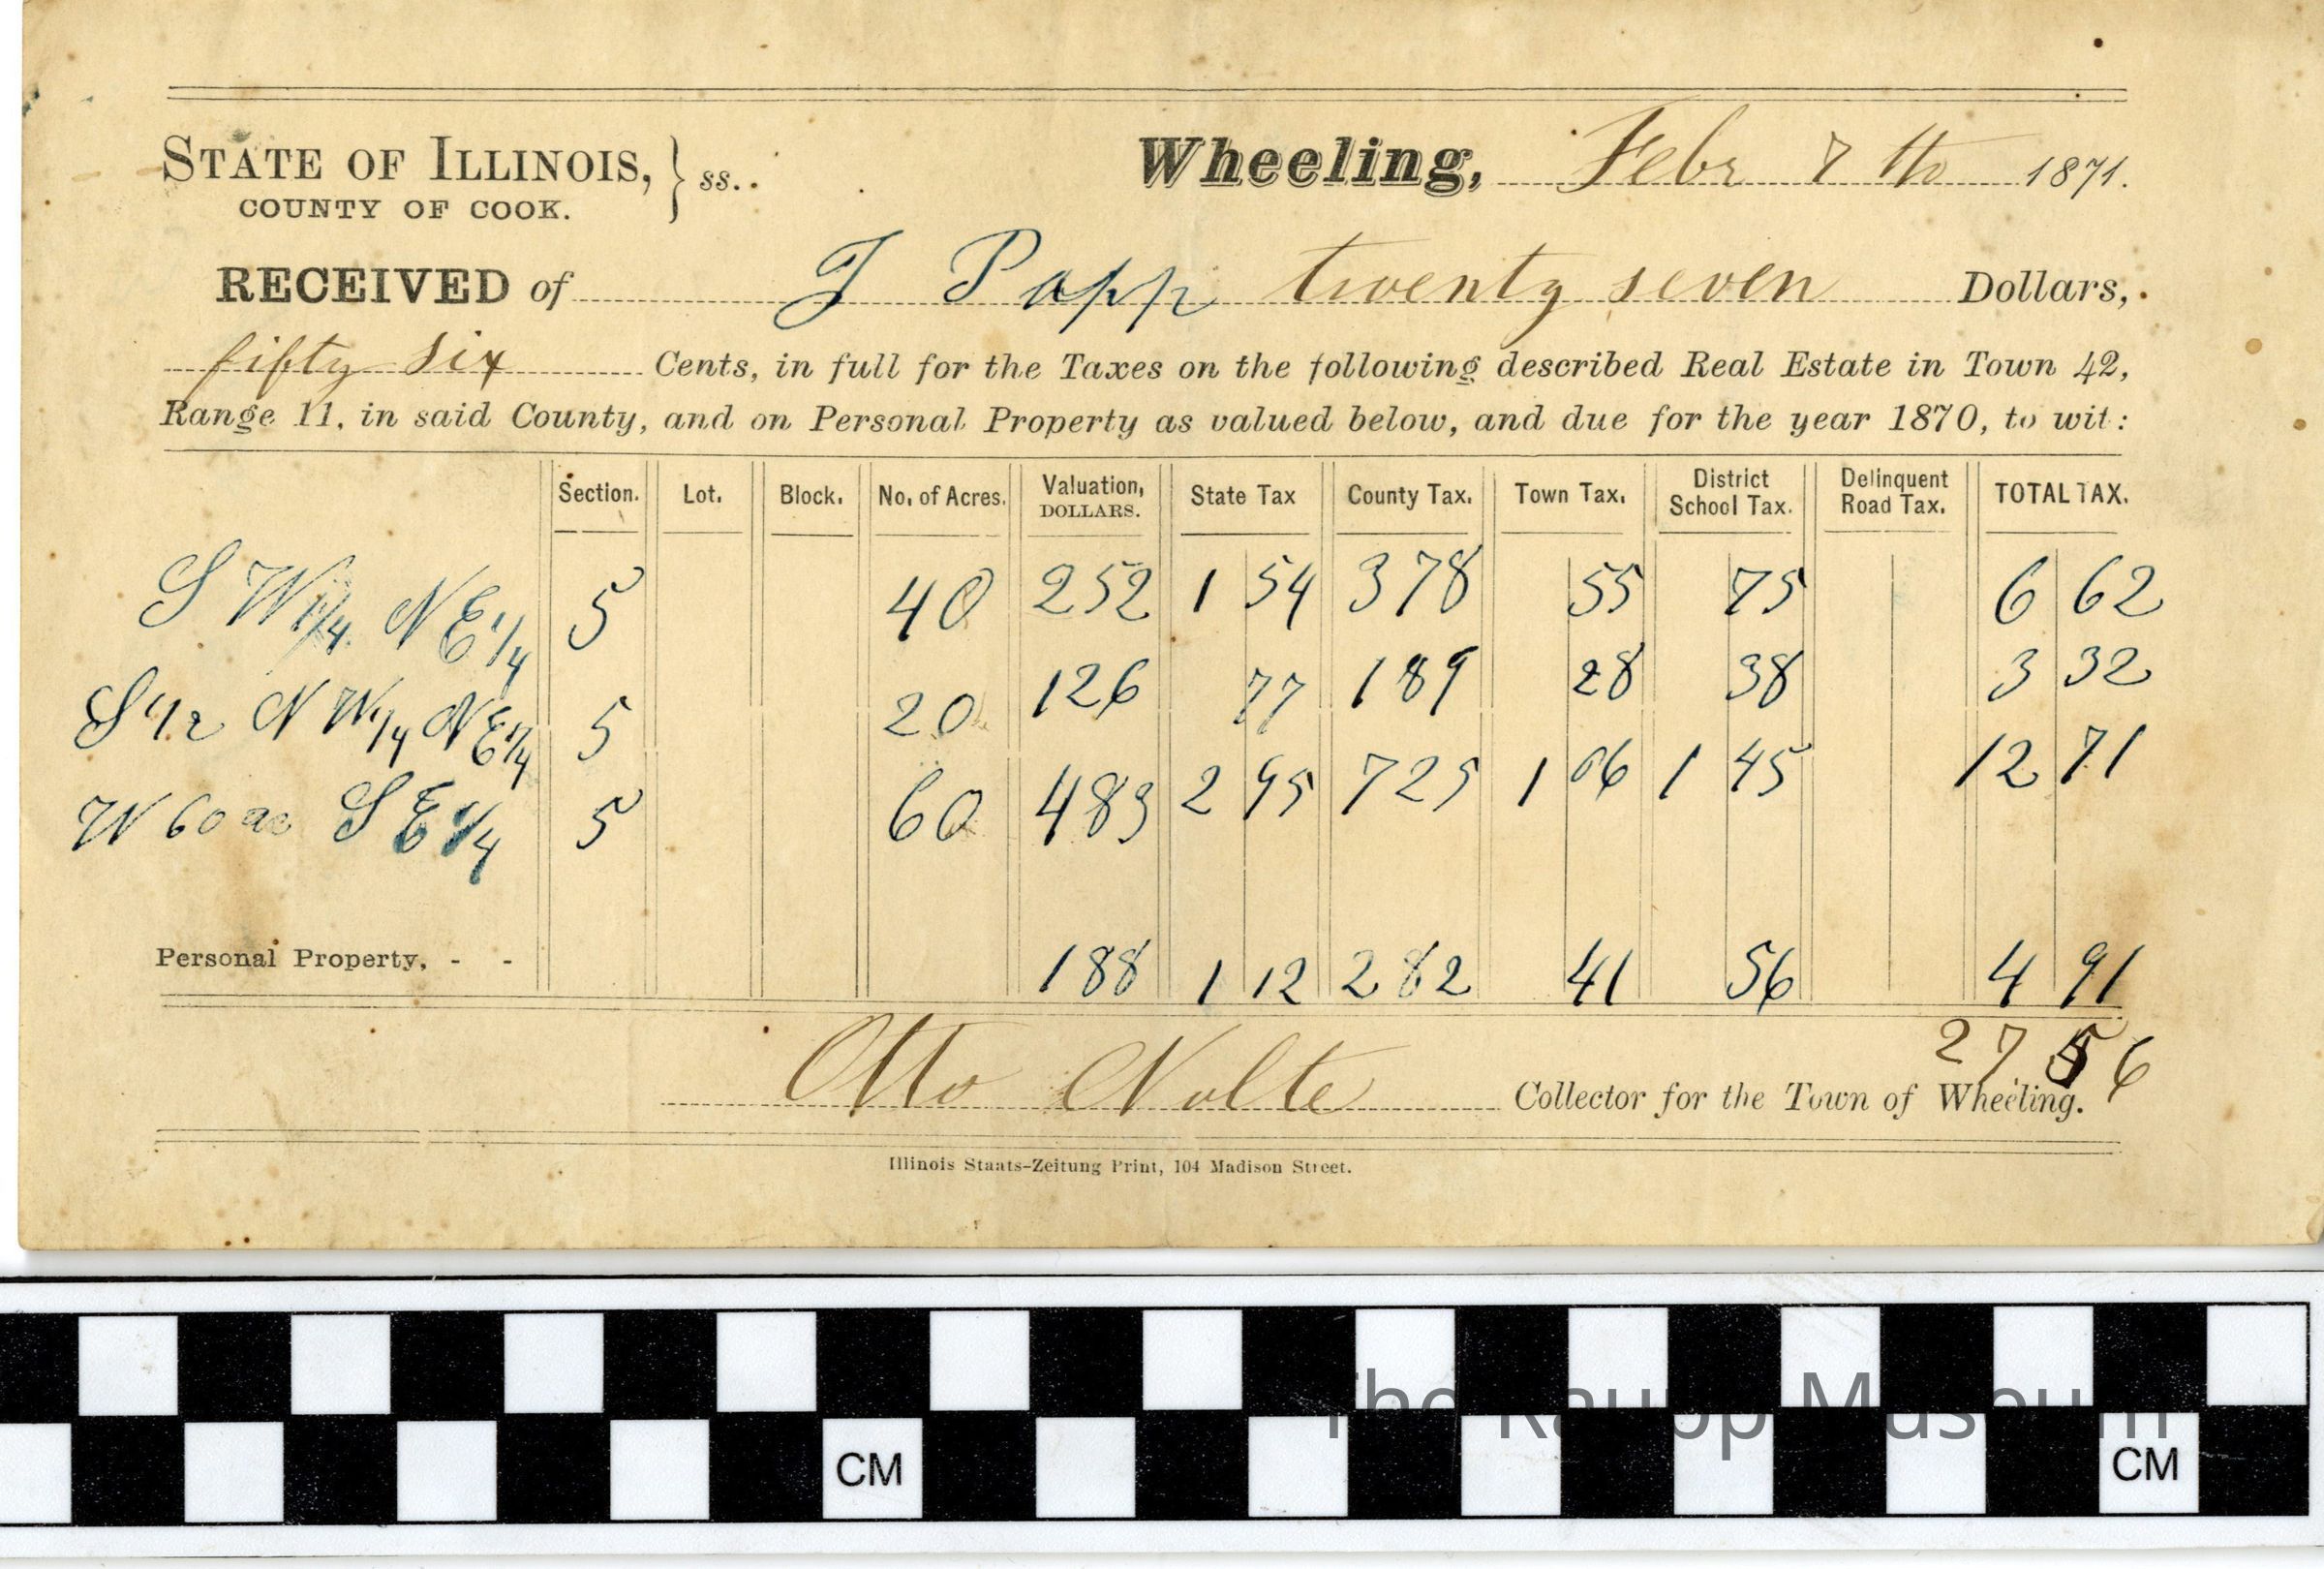 STATE OF ILLINOIS, } ss.
COUNTY OF COOK.
Wheeling, Febr 7th 1871.
RECEIVED of J Popp twenty seven Dollars,
fifty six Cents, in full for the Taxes on the following described Real Estate in Town 42,
Range 11, in said County, and on Personal Property as valued below, and due for the year 1870, to wit:
Section. Lot. Block. No. of Acres. Valuation, DOLLARS. State Tax County Tax. Town Tax. District School Tax. Delinquent Road Tax. TOTAL TAX.
S W 1/4 N E 1/4 5 40 252 1 54 3 78 55 75 6 62
S 1/2 N W 1/4 N E 1/4 5 20 126 77 1 89 28 38 3 32
W 60 ac S E 1/4 5 60 483 2 95 7 25 1 06 1 45 12 71
Personal Property, - - 188 1 12 2 82 41 56 4 91
27 56
Otto Nolte Collector for the Town of Wheeling.
Illinois Staats-Zeitung Print, 104 Madison Street.
The Raupp Museum
CM CM